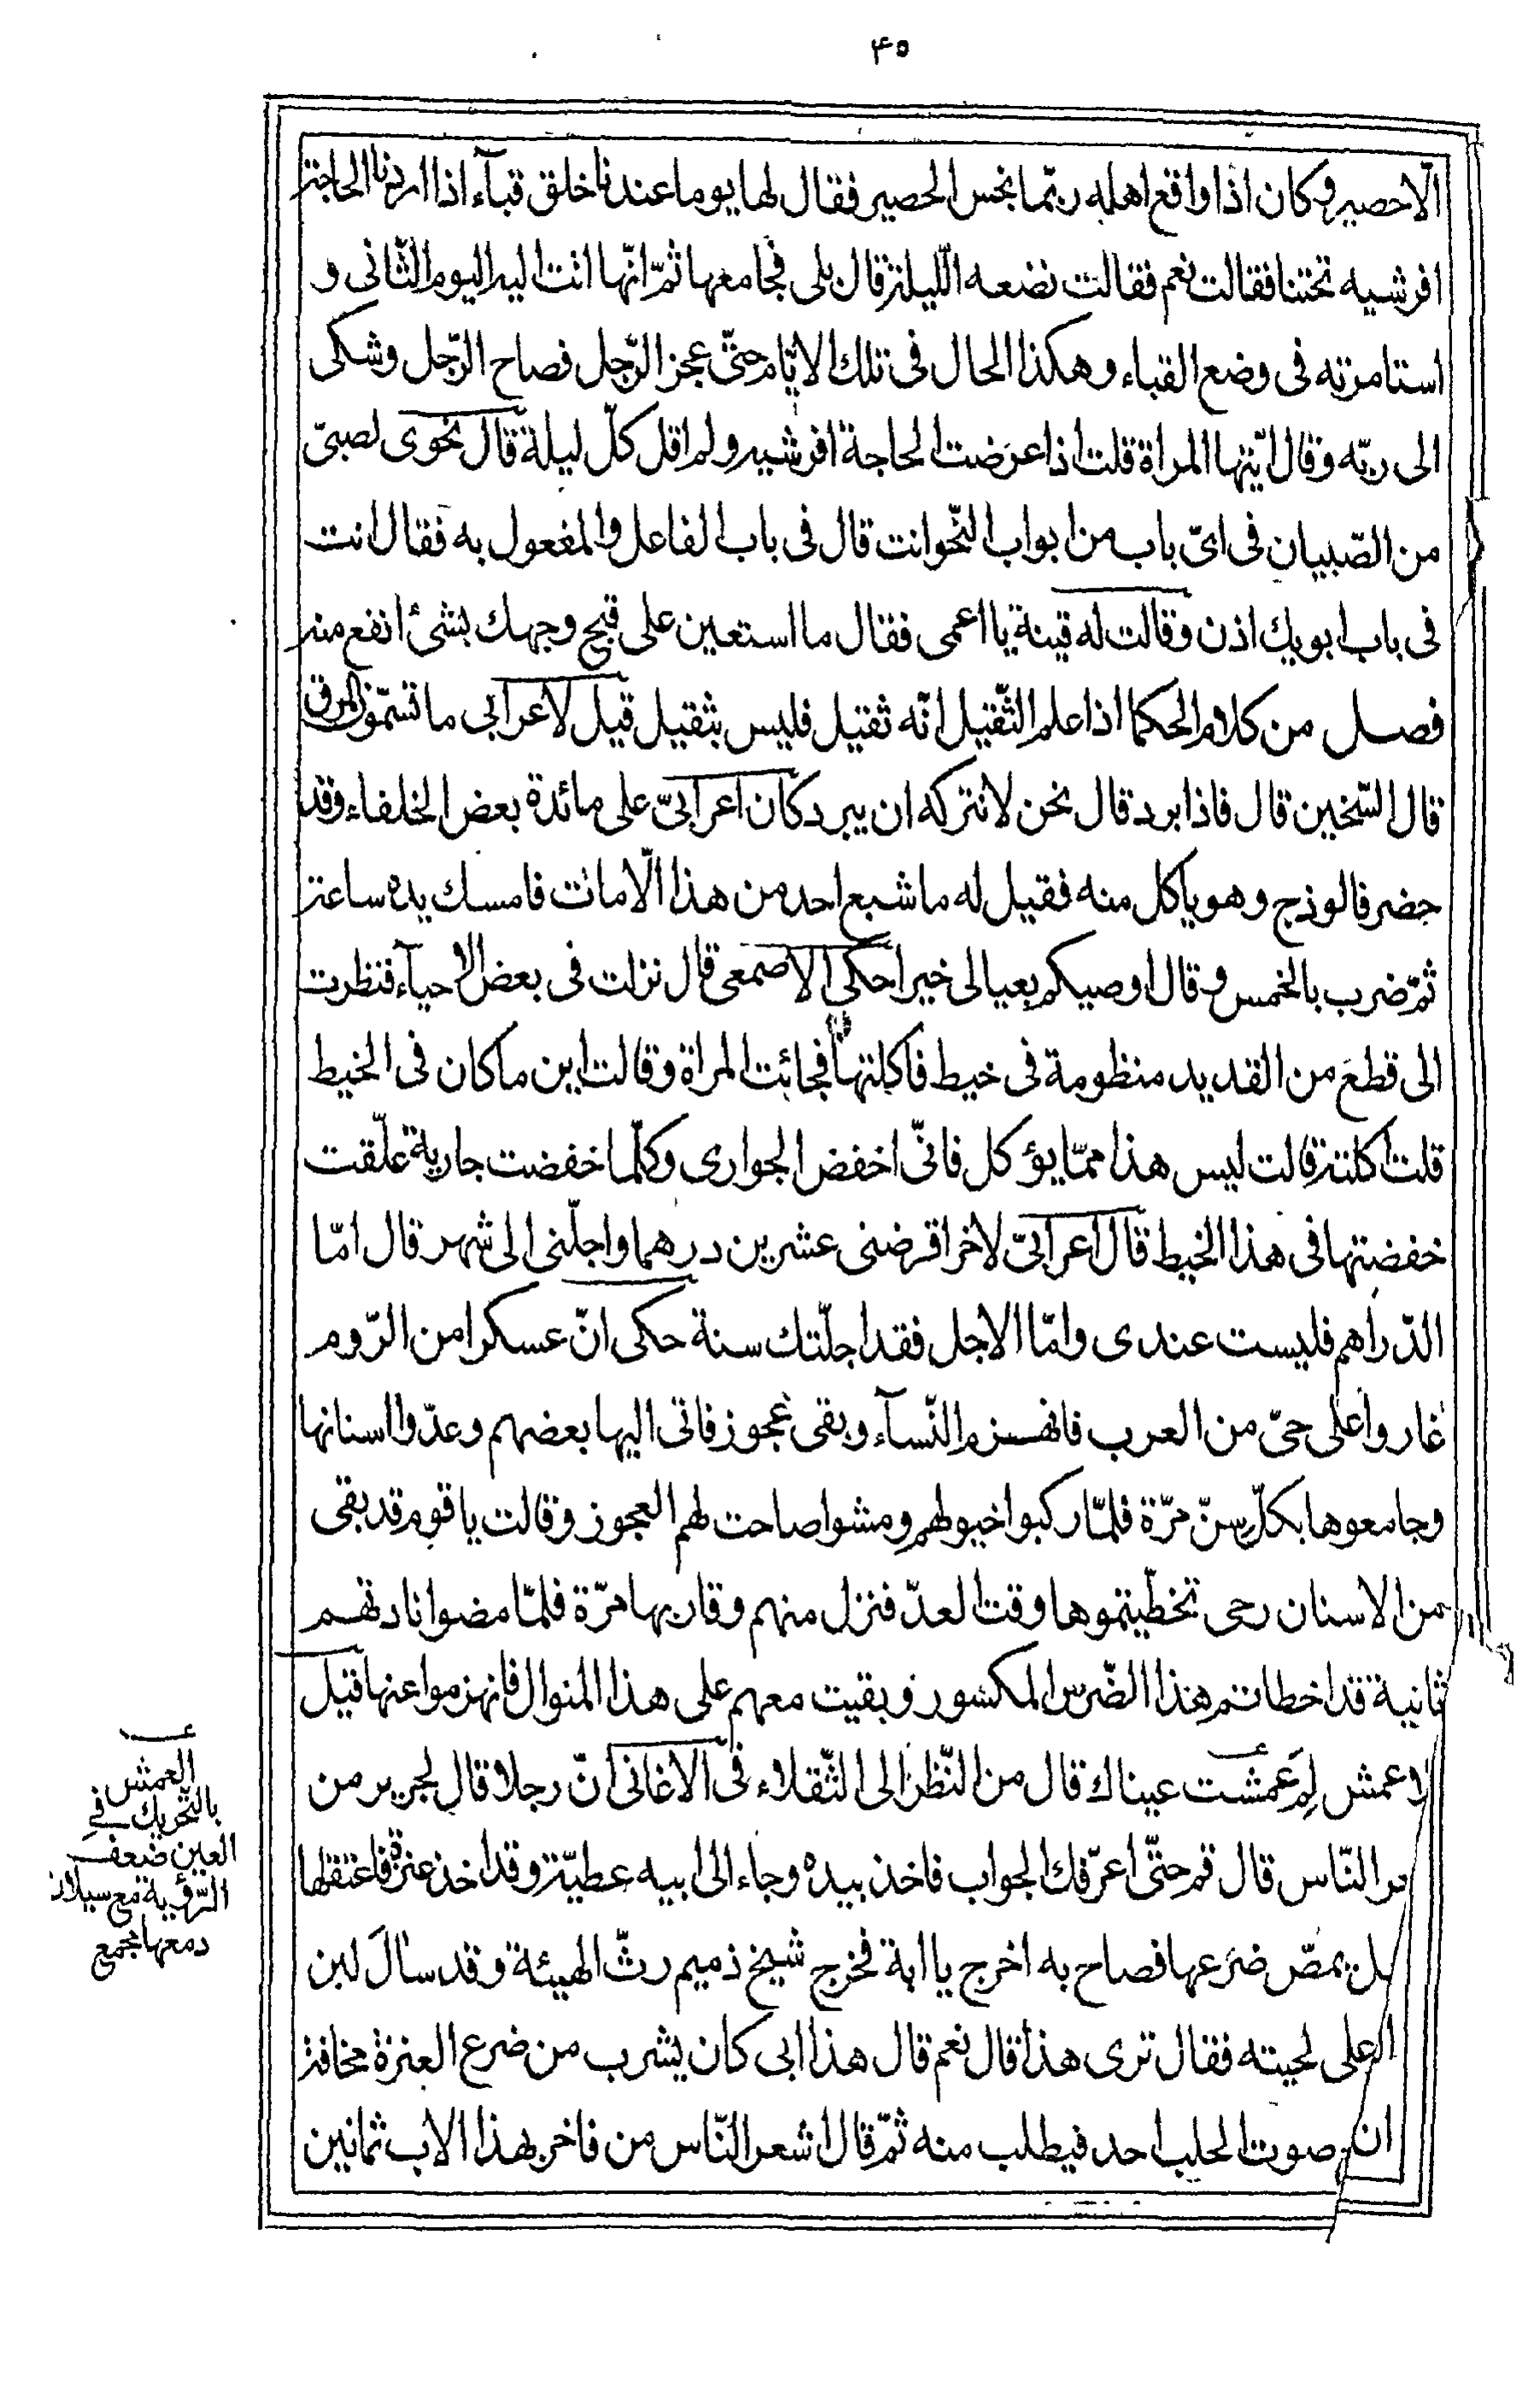 ۴۵
الّا حصير وكان اذا واقع اهله ربّما نجس الحصير فقال لها يوما عندنا خلق قباء اذا اردنا الحاجة
افرشيه تحتنا فقالت نعم فقالت نضعه اللّيلة قال بلى فجامعها ثمّ انّها اتت اليه اليوم الثّانى و
استامرته فى وضع القباء وهكذا الحال فى تلك الايّام حتّى عجز الرّجل فصاح الرّجل وشكى
الى ربّه وقال ايّتها المراة قلت اذا عرضت الحاجة افرشيه ولم اقل كلّ ليلة قال نحوى لصبىّ
من الصّبيان فى اىّ باب من ابواب النّحو انت قال فى باب الفاعل والمفعول به فقال انت
فى باب ابويك اذن وقالت له قينة يا اعمى فقال ما استعين على قبح وجهك بشئ انفع منه
فصل من كلام الحكما اذا علم الثّقيل انّه ثقيل فليس بثقيل قيل لاعرابى ما تسمّون المرق
قال السّخين قال فاذا برد قال نحن لا نتركه ان يبرد كان اعرابىّ على مائدة بعض الخلفاء وقد
حضر فالوذج وهو ياكل منه فقيل له ما شبع احد من هذا الّا مات فامسك يده ساعة
ثمّ ضرب بالخمس وقال اوصيكم بعيالى خيرا حكى الاصمعى قال نزلت فى بعض الاحياء فنظرت
الى قطع من القديد منظومة فى خيط فاكلتها فجائت المراة وقالت اين ما كان فى الخيط
قلت اكلته قالت ليس هذا ممّا يؤكل فانّى اخفض الجوارى وكلّما خفضت جارية علّقت
خفضتها فى هذا الخيط قال اعرابىّ لاخر اقرضنى عشرين درهما واجلّنى الى شهر قال امّا
الدّراهم فليست عندى وامّا الاجل فقد اجلّتك سنة حكى انّ عسكرا من الرّوم
غاروا على حىّ من العرب فانهزم النّسآء وبقى عجوز فاتى اليها بعضهم وعدّوا اسنانها
وجامعوها بكلّ سنّ مرّة فلمّا ركبوا خيولهم ومشوا صاحت لهم العجوز وقالت يا قوم قد بقى
من الاسنان رحى تخطّيتموها وقت العدّ فنزل منهم وقاربها مرّة فلمّا مضوا نادتهم
ثانية قد اخطاتم هذا الضّرس المكسور وبقيت معهم على هذا المنوال فانهزموا عنها قيل
لاعمش لِمَ عمشت عيناك قال من النّظر الى الثّقلاء فى الاغانى انّ رجلا قال لجرير من
النّاس قال قم حتّى اعرّفك الجواب فاخذ بيده وجاء الى ابيه عطيّة وقد اخذ عنزة فاعتقلها
يمصّ ضرعها فصاح به اخرج يا ابة فخرج شيخ ذميم رثّ الهيئة وقد سال لبن
على لحيته فقال ترى هذا قال نعم قال هذا ابى كان يشرب من ضرع العنزة مخافة
ان صوت الحلب احد فيطلب منه ثمّ قال اشعر النّاس من فاخر بهذا الاب ثمانين
العمش
بالتّحريك فى
العين ضعف
الرّؤية مع سيلان
دمعها مجمع